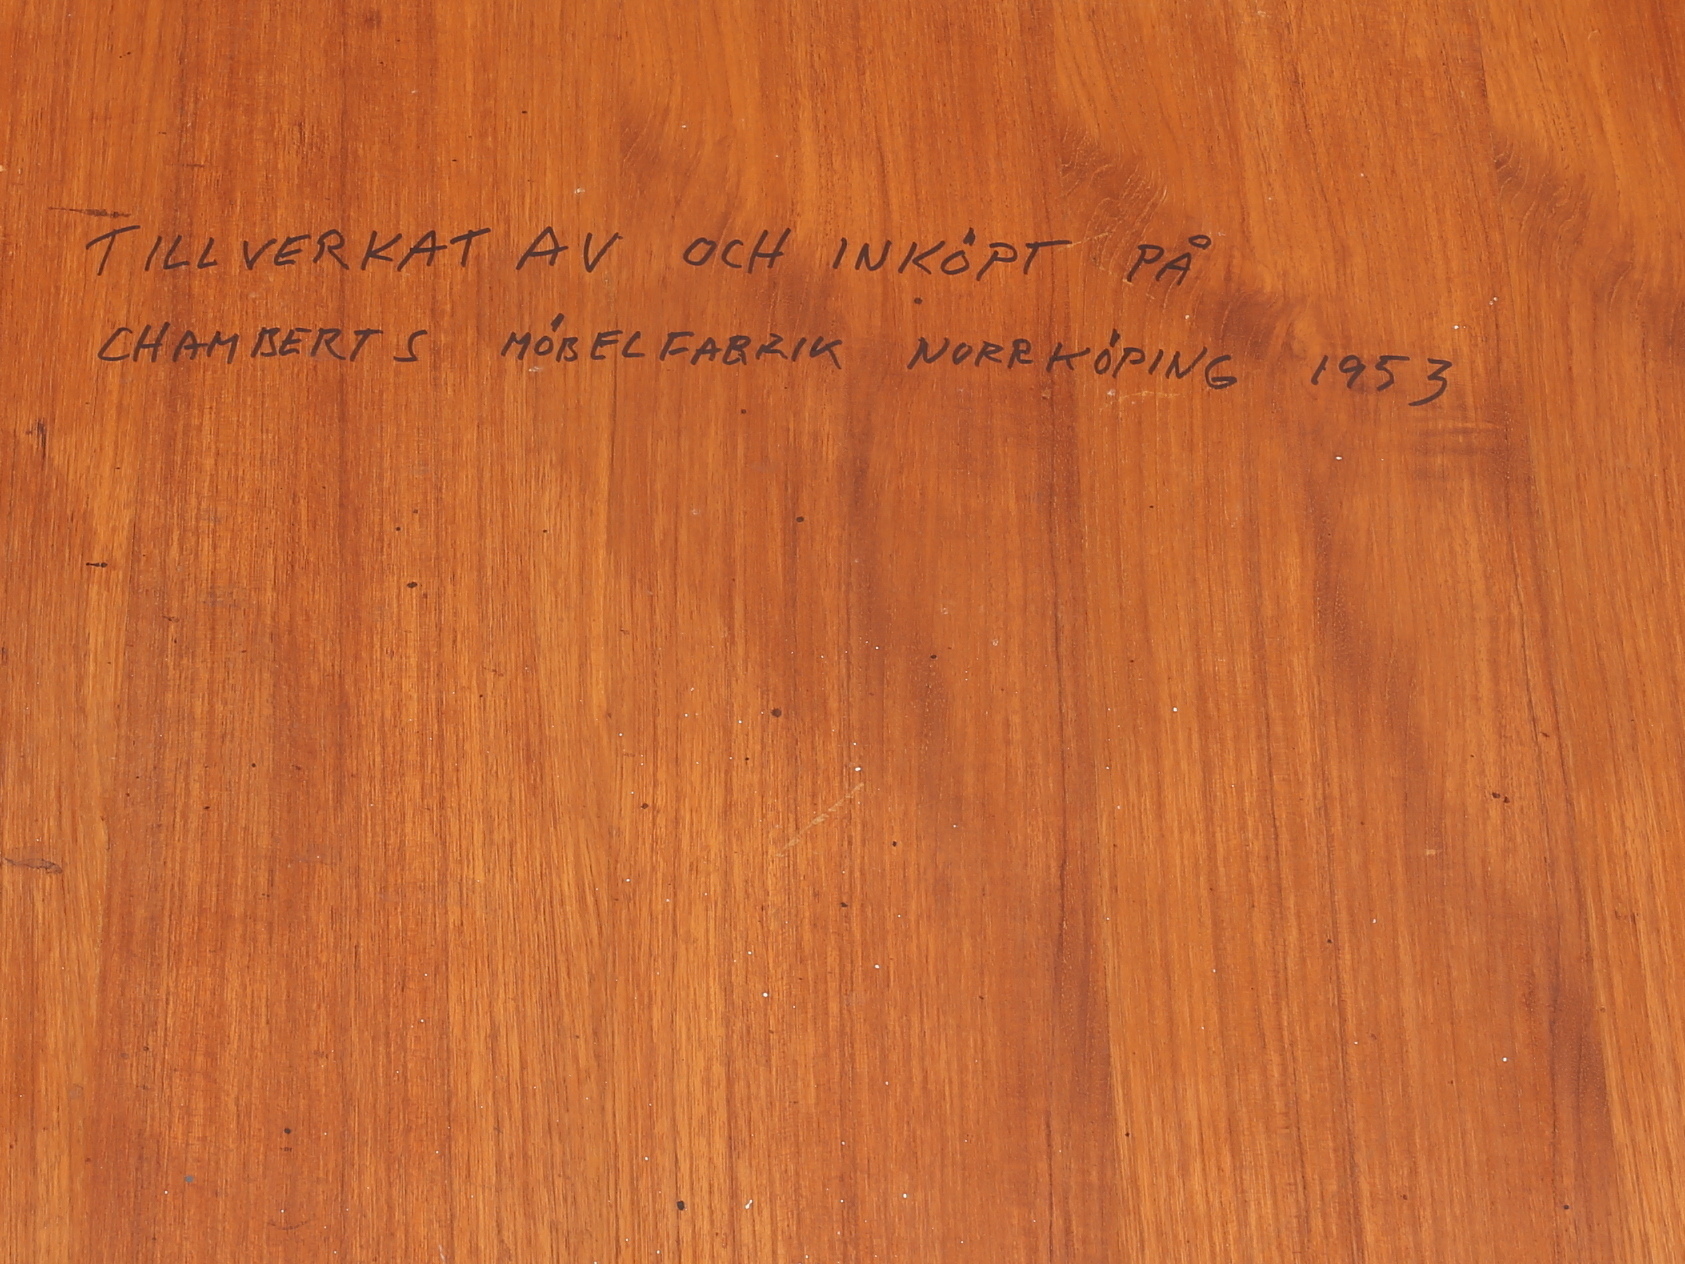 TILLVERKAT AV OCH INKÖPT PÅ
CHAMBERTS MÖBELFABRIK NORRKÖPING 1953